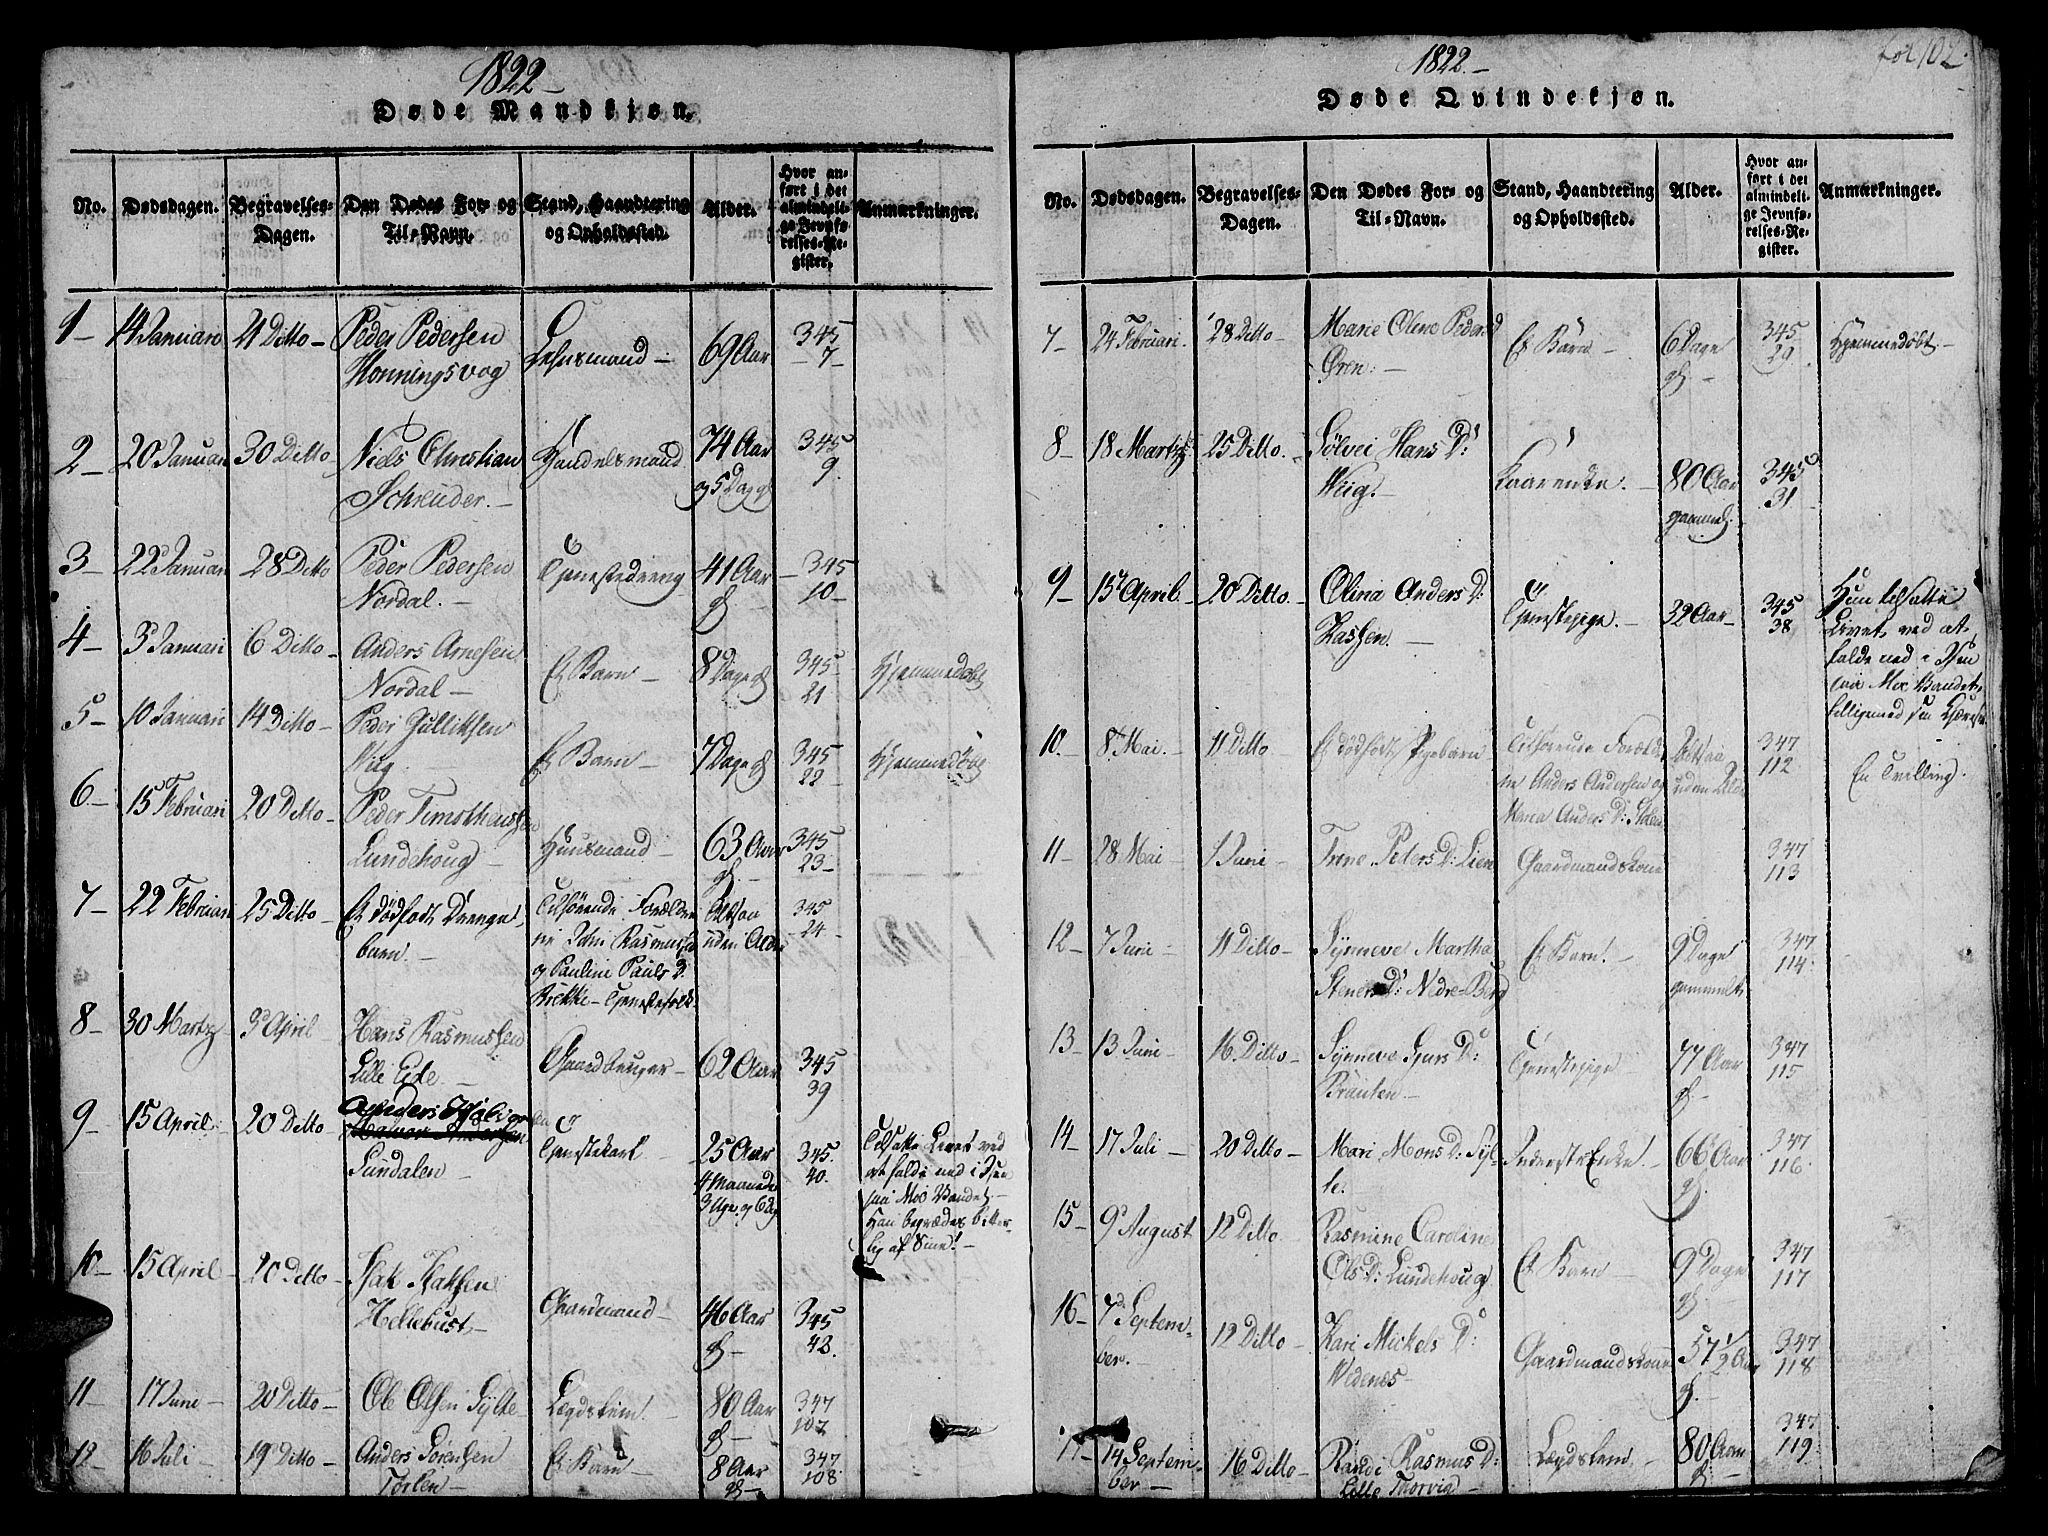 1822
Døde Mandkjøn.
No.
Dødsdagen.
Begravelses-
Dagen.
Den Dødes For- og
Til-Navn.
Stand, Haandtering
og Opholdssted.
Alder.
Hvor an-
ført i det
almindeli-
ge Jevnfø-
relses-Re-
gister.
Anmærkninger.
1 14 Januari 21 Ditto Peder Pedersen
Honningsvog
Lehnsmand 69 Aar 345
7
2 20 Januari 30 Ditto Niels Christian
Schreuder.
Handelsmand 74 Aar
og 5 Dag gl
345
9.
3 22 Januari 28 Ditto Peder Pedersen
Nordal.
Tjenestedreng 41 Aar
gl
345
10
4 3 Januari 6 Ditto Anders Arnesen
Nordal
Et Barn 8 Dage gl 345
21
Hjemmedøbt
5 10 Januari 14 Ditto Peder Gulliksen
Wiig
Et Barn 7 Dage gl 345
22
Hjemmedøbt
6 15 Februari 20 Ditto Peder Timotheussen
Lundehoug
Huusmand 63 Aar
gl.
345
23
7 22 Februari 25 Ditto Et dødfødt Drenge
barn.
Tilhørende Forældre
ne John Rasmussen
og Pauline Pauls D:
Brekke - Tjenestefolk
Altsaa
uden Alder
345
24
8 30 Martz 3 April Hans Rasmussen
Lille Eide
Gaardbruger 62 Aar 345
39
9 15 April 20 Ditto Anders
Sundalen
Tjenestekarl 25 Aar
4 Maaneder
3 Uger og 6 Dag
345
40.
Tilsatte Livet ved
at falde ned i Isen
paa Mio Vandet
Han begrædes bitter-
lig af Sine!
10 15 April 20 Ditto Isak Isaksen
Hellebust
Gaardmand 46 Aar
gl
345
42.
11 17 Juni 20 Ditto Ole Olsen Sylte
Lægdslem 80 Aar
gl
347
107
12 16 Juli 19 Ditto Anders Sørensen
Torlen
Et Barn 8 Aar
gl
347
108.
fol 102.
1822.
Døde Qvindekjøn.
No.
Dødsdagen.
Begravelses-
Dagen.
Den Dødes For- og
Til-Navn.
Stand, Haandtering
og Opholdssted.
Alder.
Hvor an-
ført i det
almindeli-
ge Jevnfø-
relses-Re-
gister.
Anmærkninger.
7 24 Februari. 28 Ditto Marie Oline Peders D
Ören
Et Barn 6 Dage
gl
345
29
Hjemmedøbt
8 18 Martz 25 Ditto. Sølvei Hans D:
Wiig.
Kaarenke. 80 Aar
gammel
345
31
9 15 April 20 Ditto Olina Anders D:
Hassen.
Tjenestepige. 32 Aar 345
38
Hun tilsatte
Livet ved at
falde ned i Isen
paa Mio Vandet
10. 8 Mai. 11 Ditto. Et dødfødt Pigebarn
Tilhørende Forældre
ne Anders Andersen og
Maria Anders D:
Altsaa
uden Alder
347
112
En Tvilling.
11 28 Mai 1 Juni Trine Peders D: Lien
Gaardmandskone 347
113
12 7 Juni 11 Ditto Synneve Martha
Steners D: Nedre-Berg
Et Barn! 9 Dage
gammelt
347
114
13 13 Juni 16 Ditto Synneve Sjurs D:
Bräuten
Tjenestepige 77 Aar
gl
347
115
14 17 Juli 20 Ditto Mari Mons D: Syl-
te.
Inderst Enke. 66 Aar
gl.
347
116.
15 9 August 12 Ditto Rasmine Caroline
Ols D: Lundehoug
Et Barn 9 Dage
gl
347
117
16 7 Septem-
ber.
12 Ditto Kari Mickels D:
Nedenæs
Gaardmandskone 57 1/2 Aar
gl.
347
118
17 14 Septem-
ber
16 Ditto Randi Rasmus D:
Lille Thorvig
Legdslem 80 Aar
gl
347
119.